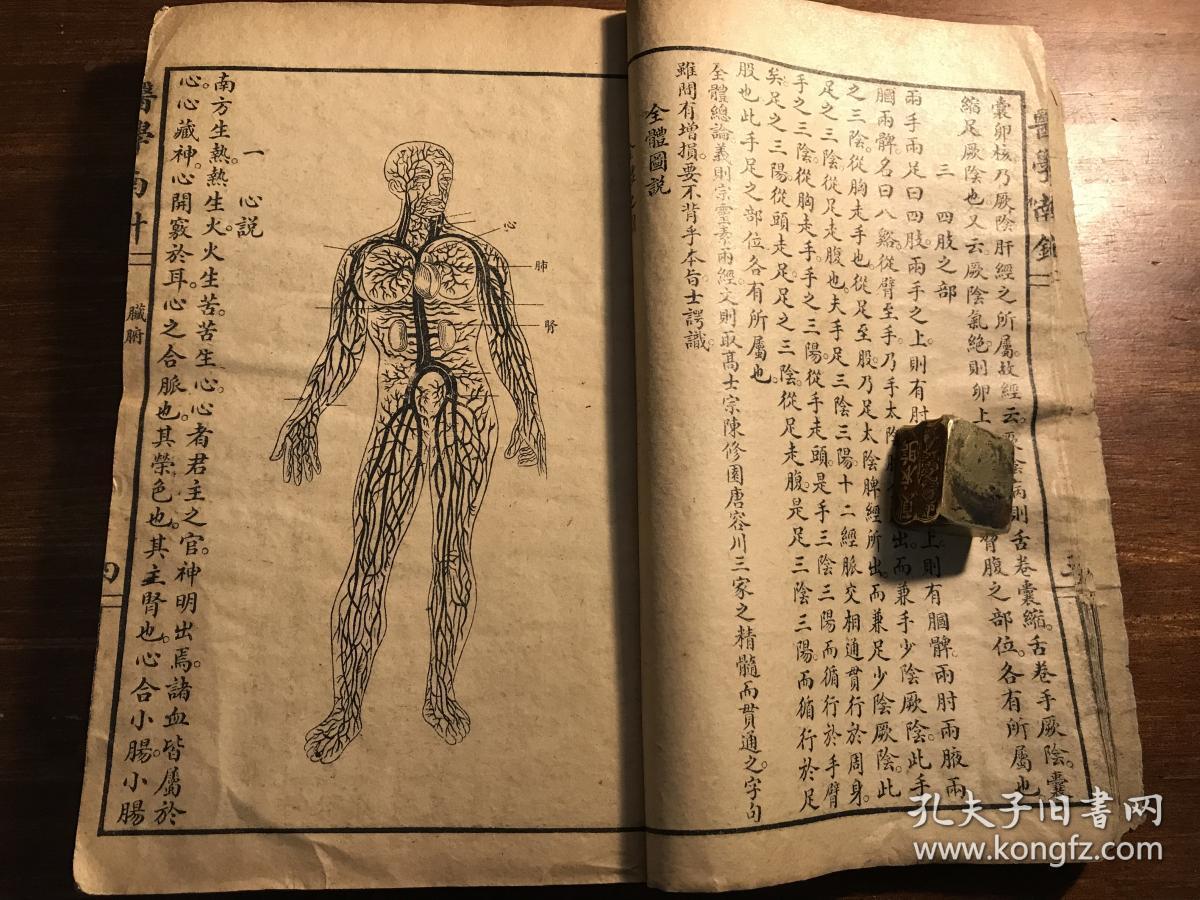 醫學南針
囊卵核乃厥陰肝經之所屬。故經云。厥陰病則舌卷囊縮。舌卷手厥陰。囊
縮足厥陰也。又云。厥陰氣絕則卵上
脅腹之部位。各有所屬也
三
三 四肢之部
兩手兩足曰四肢。兩手之上則有肘
上則有膕髀。兩肘兩腋兩
膕兩髀。名曰八谿。從臂至手。乃手太陰
出。而兼手少陰厥陰。此手
之三陰。從胸走手也。從足至股。乃足太陰脾經所出。而兼足少陰厥陰。此
足之三陰。從足走腹也。夫手足三陰三陽。十二經脈。交相通貫。行於周身。
手之三陰。從胸走手。手之三陽。從手走頭。是手三陰三陽。而循行於手臂
矣。足之三陽。從頭走足。足之三陰。從足走腹。是足三陰三陽。而循行於足
股也。此手足之部位。各有所屬也。
全體總論。義則宗靈素兩經。文則取高士宗陳修園唐容川三家之精髓而貫通之。字句
雖間有增損。要不背乎本旨。士諤識。
全體圖說
心
肺
腎
一 心說
南方生熱。熱生火。火生苦。苦生心。心者君主之官。神明出焉。諸血皆屬於
心。心藏神。心開竅於耳。心之合脈也。其榮色也。其主腎也。心合小腸。小腸
醫學南針
臟腑
四
孔夫子旧书网
www.kongfz.com